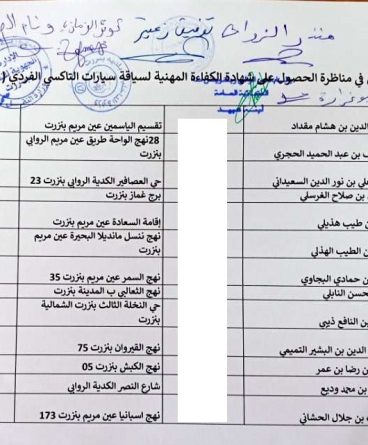 منذر الزواي
توفيق زعتير
في مناظرة الحصول على شهادة الكفاءة المهنية لسياقة سيارات التاكسي الفردي (
الدين بن هشام مقداد تقسيم الياسمين عين مريم بنزرت
ف بن عبد الحميد الحجري 28نهج الواحة طريق عين مريم الروابي
بنزرت
علي بن نور الدين السعيداني حي العصافير الكدية الروابي بنزرت 23
بن صلاح الغرسلي برج غماز بنزرت
بن طيب هذيلي إقامة السعادة عين مريم بنزرت
الطيب الهذلي نهج ننسل مانديلا البحيرة عين مريم
بنزرت
بن حمادي البجاوي نهج السمر عين مريم بنزرت 35
حسن النابلي نهج الثعالبي ب المدينة بنزرت
بن النافع ذيبي حي النخلة الثالث بنزرت الشمالية
بنزرت
الدين بن البشير التميمي نهج القيروان بنزرت 75
بن رضا بن عمر نهج الكبش بنزرت 05
بن محمد وديع شارع النصر الكدية الروابي
بن جلال الحشاني نهج اسبانيا عين مريم بنزرت 173